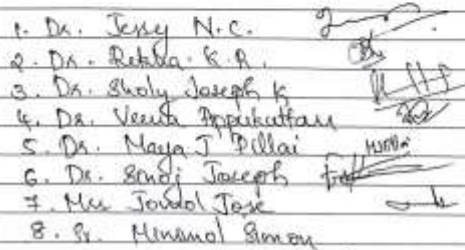 1. Dr. Jessy N.C.
2. Dr. Rekha. K.R.
3. Dr. Sholy Joseph K
4. Dr. Veena Appukuttan
5. Dr. Maya J Pillai
6. Dr. Sinoj Joseph
7. Mrs Jose
8. Sr. Minimol Simon